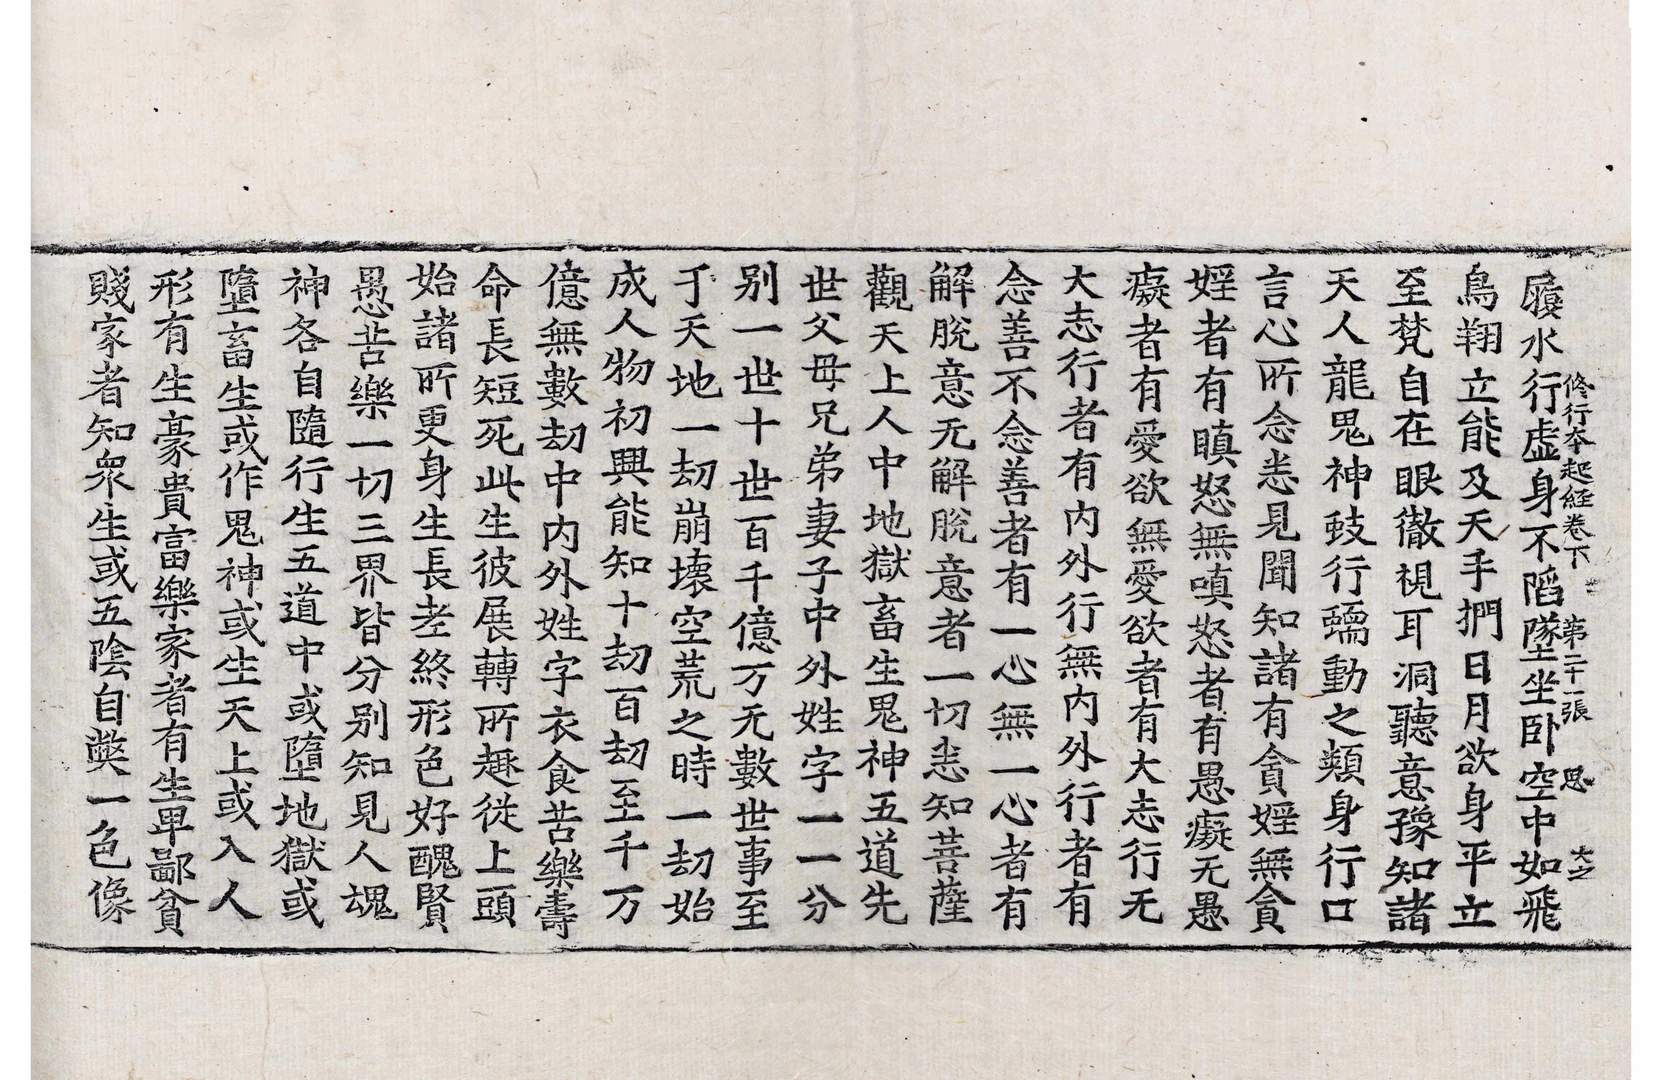 修行本起経卷下　第二十一張　思　大之
履水行虚身不䧟墜坐卧空中如飛
鳥翔立能及天手捫日月欲身平立
至梵自在眼徹視耳洞聽意豫知諸
天人龍鬼神蚑行蠕動之類身行口
言心所念悉見聞知諸有貪婬無貪
婬者有瞋怒無嗔怒者有愚癡无愚
癡者有愛欲無愛欲者有大志行无
大志行者有内外行無内外行者有
念善不念善者有一心無一心者有
解脫意无解脫意者一切悉知菩薩
觀天上人中地獄畜生鬼神五道先
世父母兄弟妻子中外姓字一一分
别一世十世百千億万无數世事至
于天地一劫崩壊空荒之時一劫始
成人物初興能知十劫百劫至千万
億無數劫中内外姓字衣食苦樂壽
命長短死此生彼展轉所趣從上頭
始諸所更身生長老終形色好醜賢
愚苦樂一切三界皆分别知見人魂
神各自隨行生五道中或墮地獄或
墮畜生或作鬼神或生天上或入人
形有生豪貴富樂家者有生卑鄙貧
賤家者知衆生或五陰自獘一色像